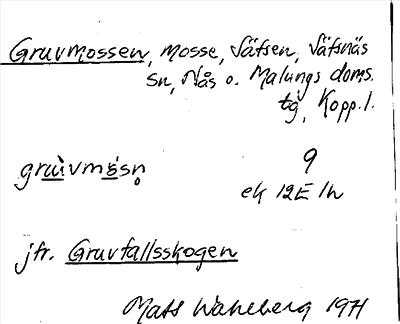 Gruvmossen, mosse, Säfsen, Säfsnäs
sn, Nås o. Malungs doms.
tg, Kopp. l.
9
ek 12E 1h
jfr. Gruvfallsskogen
Mats Wahlberg 1971